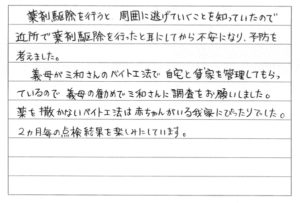 薬剤駆除を行うと 周囲に逃げていくことを知っていたので
近所で薬剤駆除を行ったと耳にしてから不安になり、予防を
考えました。
義母が三和さんのベイト工法で 自宅と貸家を管理してもらっ
ているので 義母の勧めで三和さんに調査をお願いしました。
薬を撒かないベイト工法は赤ちゃんがいる我家にぴったりでした。
2ヵ月毎の点検結果を楽しみにしています。